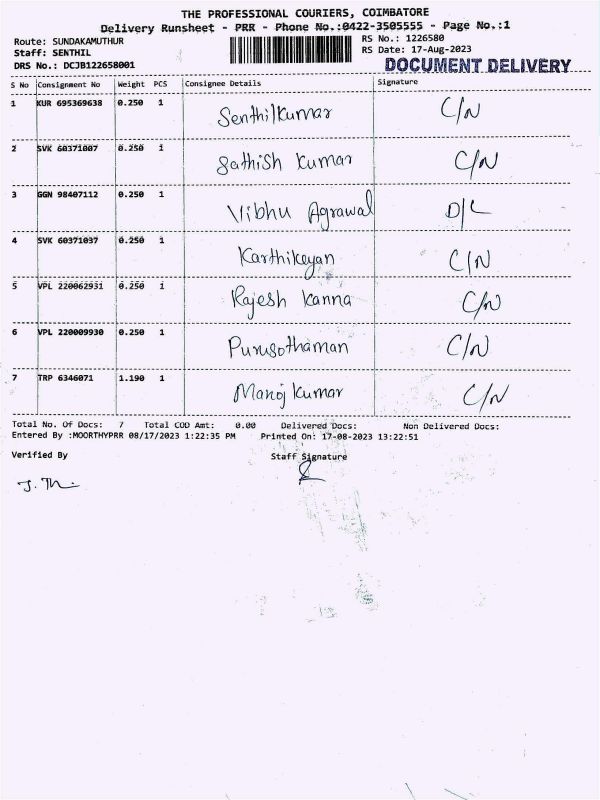 THE PROFESSIONAL COURIERS, COIMBATORE
Delivery Runsheet - PRR - Phone No.:0422-3505555 - Page No.:1
Route: SUNDAKAMUTHUR
RS No.: 1226580
Staff: SENTHIL
RS Date: 17-Aug-2023
DRS No.: DCJB122658001
DOCUMENT DELIVERY
S No Consignment No Weight PCS Consignee Details Signature
1 KUR 695369638 0.250 1 Senthilkumar C/N
2 SVK 60371007 0.250 1 Sathish Kumar C/N
3 GGN 98407112 0.250 1 Vibhu Agrawal D/L
4 SVK 60371037 0.250 1 Karthikeyan C/N
5 VPL 220062931 0.250 1 Rajesh Kanna C/N
6 VPL 220009930 0.250 1 Purusothaman C/N
7 TRP 6346071 1.190 1 Manoj Kumar C/N
Total No. Of Docs: 7 Total COD Amt: 0.00 Delivered Docs: Non Delivered Docs:
Entered By :MOORTHYPRR 08/17/2023 1:22:35 PM Printed On: 17-08-2023 13:22:51
Verified By Staff Signature